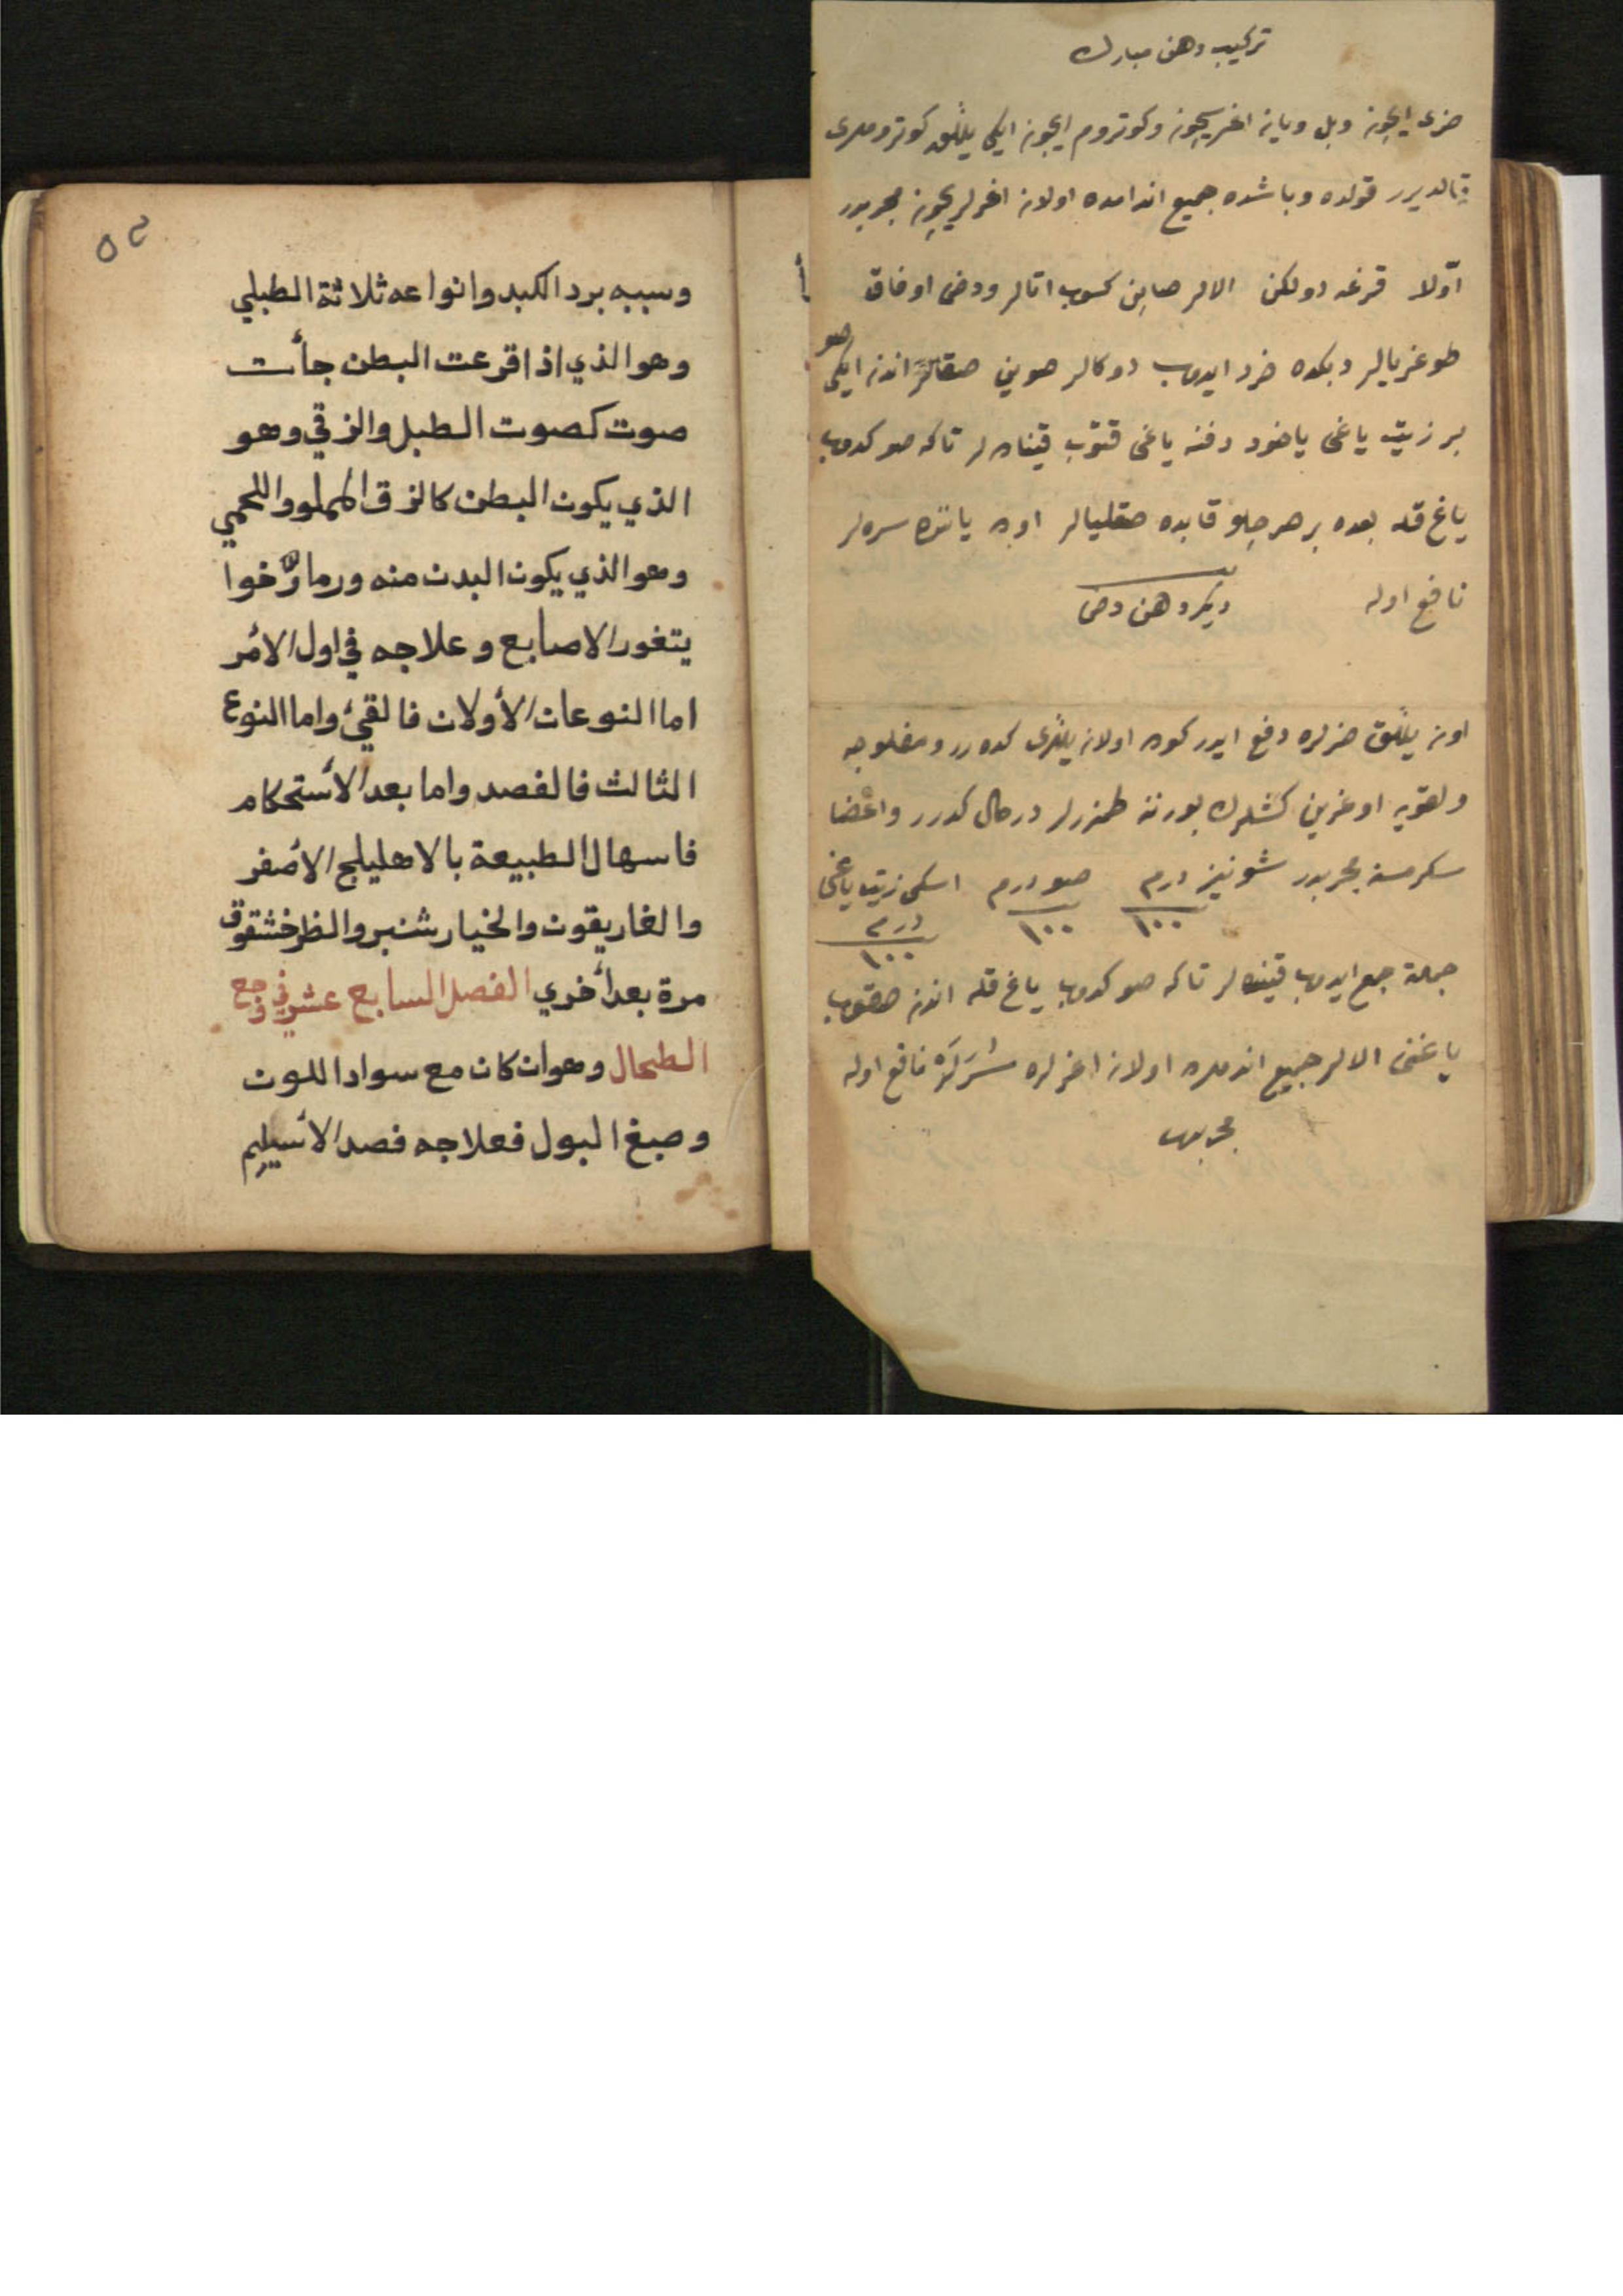 تركيب دهن مبارك
ايچون وبل ويانه اغريسيچون وكوتروم ايچون ايكى ييللق كوتروملرى
قالديرر قولده وباشده جميع اندامده اولانه اغريلريچون مجربدر
اوّلا قرغه دولكن الالر صاپن كسوب اتالر ودخى اوفاق
طوغريالر دبكده خرد ايدوب دوكالر صوين صقالر اندنه ايكى صو
بر زيت ياغى ياخود دفنه ياغى قتوب قينادەلر تاكه صو كدوب
ياغ قله بعده بر صرچلو قابده صقليالر اوده ياننده سرەلر
نافع اوله
ديكر دهن دخى
اونه ييللق ضررلره دفع ايدر اولانه ييللرى كدەرر ومفلوجه
ولقويه اوغرين كشلرك بورننه طمزرلر درحال كدرر واعضا
سكرمسنه مجربدر شونيز درم ١٠٠ صو درم ١٠٠ اسكى زيت ياغى درم ١٠٠
جمله جمع ايدوب قينەلر تاكه صو كدوب ياغ قله اندنه صقوب
ياغنى الالر جميع اندامده اولانه اغريلره سررلر نافع اوله
مجربدر
٥٢
وسببه برد الكبد وانواعه ثلاثة الطبلي
وهو الذي اذا قرعت البطن جأت
صوت كصوت الطبل والزقي وهو
الذي يكون البطن كالزق المملو واللحمي
وهو الذي يكون البدن منه ورما رخوا
يتغور الاصابع وعلاجه في اول الأمر
اما النوعان الأولان فالقئ واما النوع
الثالث فالفصد واما بعد الأستحكام
فاسهال الطبيعة بالاهليلج الأصفر
والغاريقون والخيارشنبر والطرخشقوق
مرة بعد أخري الفصل السابع عشر في وجع
الطحال وهو ان كان مع سواد اللون
وصبغ البول فعلاجه فصد الأسيلم